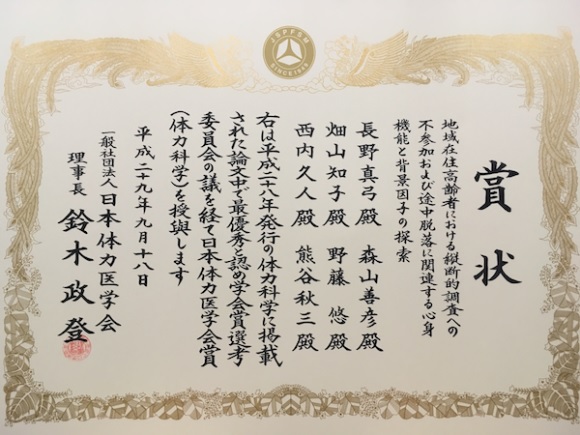 JSPFSM
SINCE 1949
賞状
地域在住高齢者における縦断的調査への
不参加および途中脱落に関連する心身
機能と背景因子の探索
長野真弓殿 森山善彦殿
畑山知子殿 野藤 悠殿
西内久人殿 熊谷秋三殿
右は平成二十八年発行の体力科学に掲載
された論文中で最優秀と認め学会賞選考
委員会の議を経て日本体力医学会賞
(体力科学)を授与します
平成二十九年九月十八日
一般社団法人日本体力医学会
理事長 鈴木政登